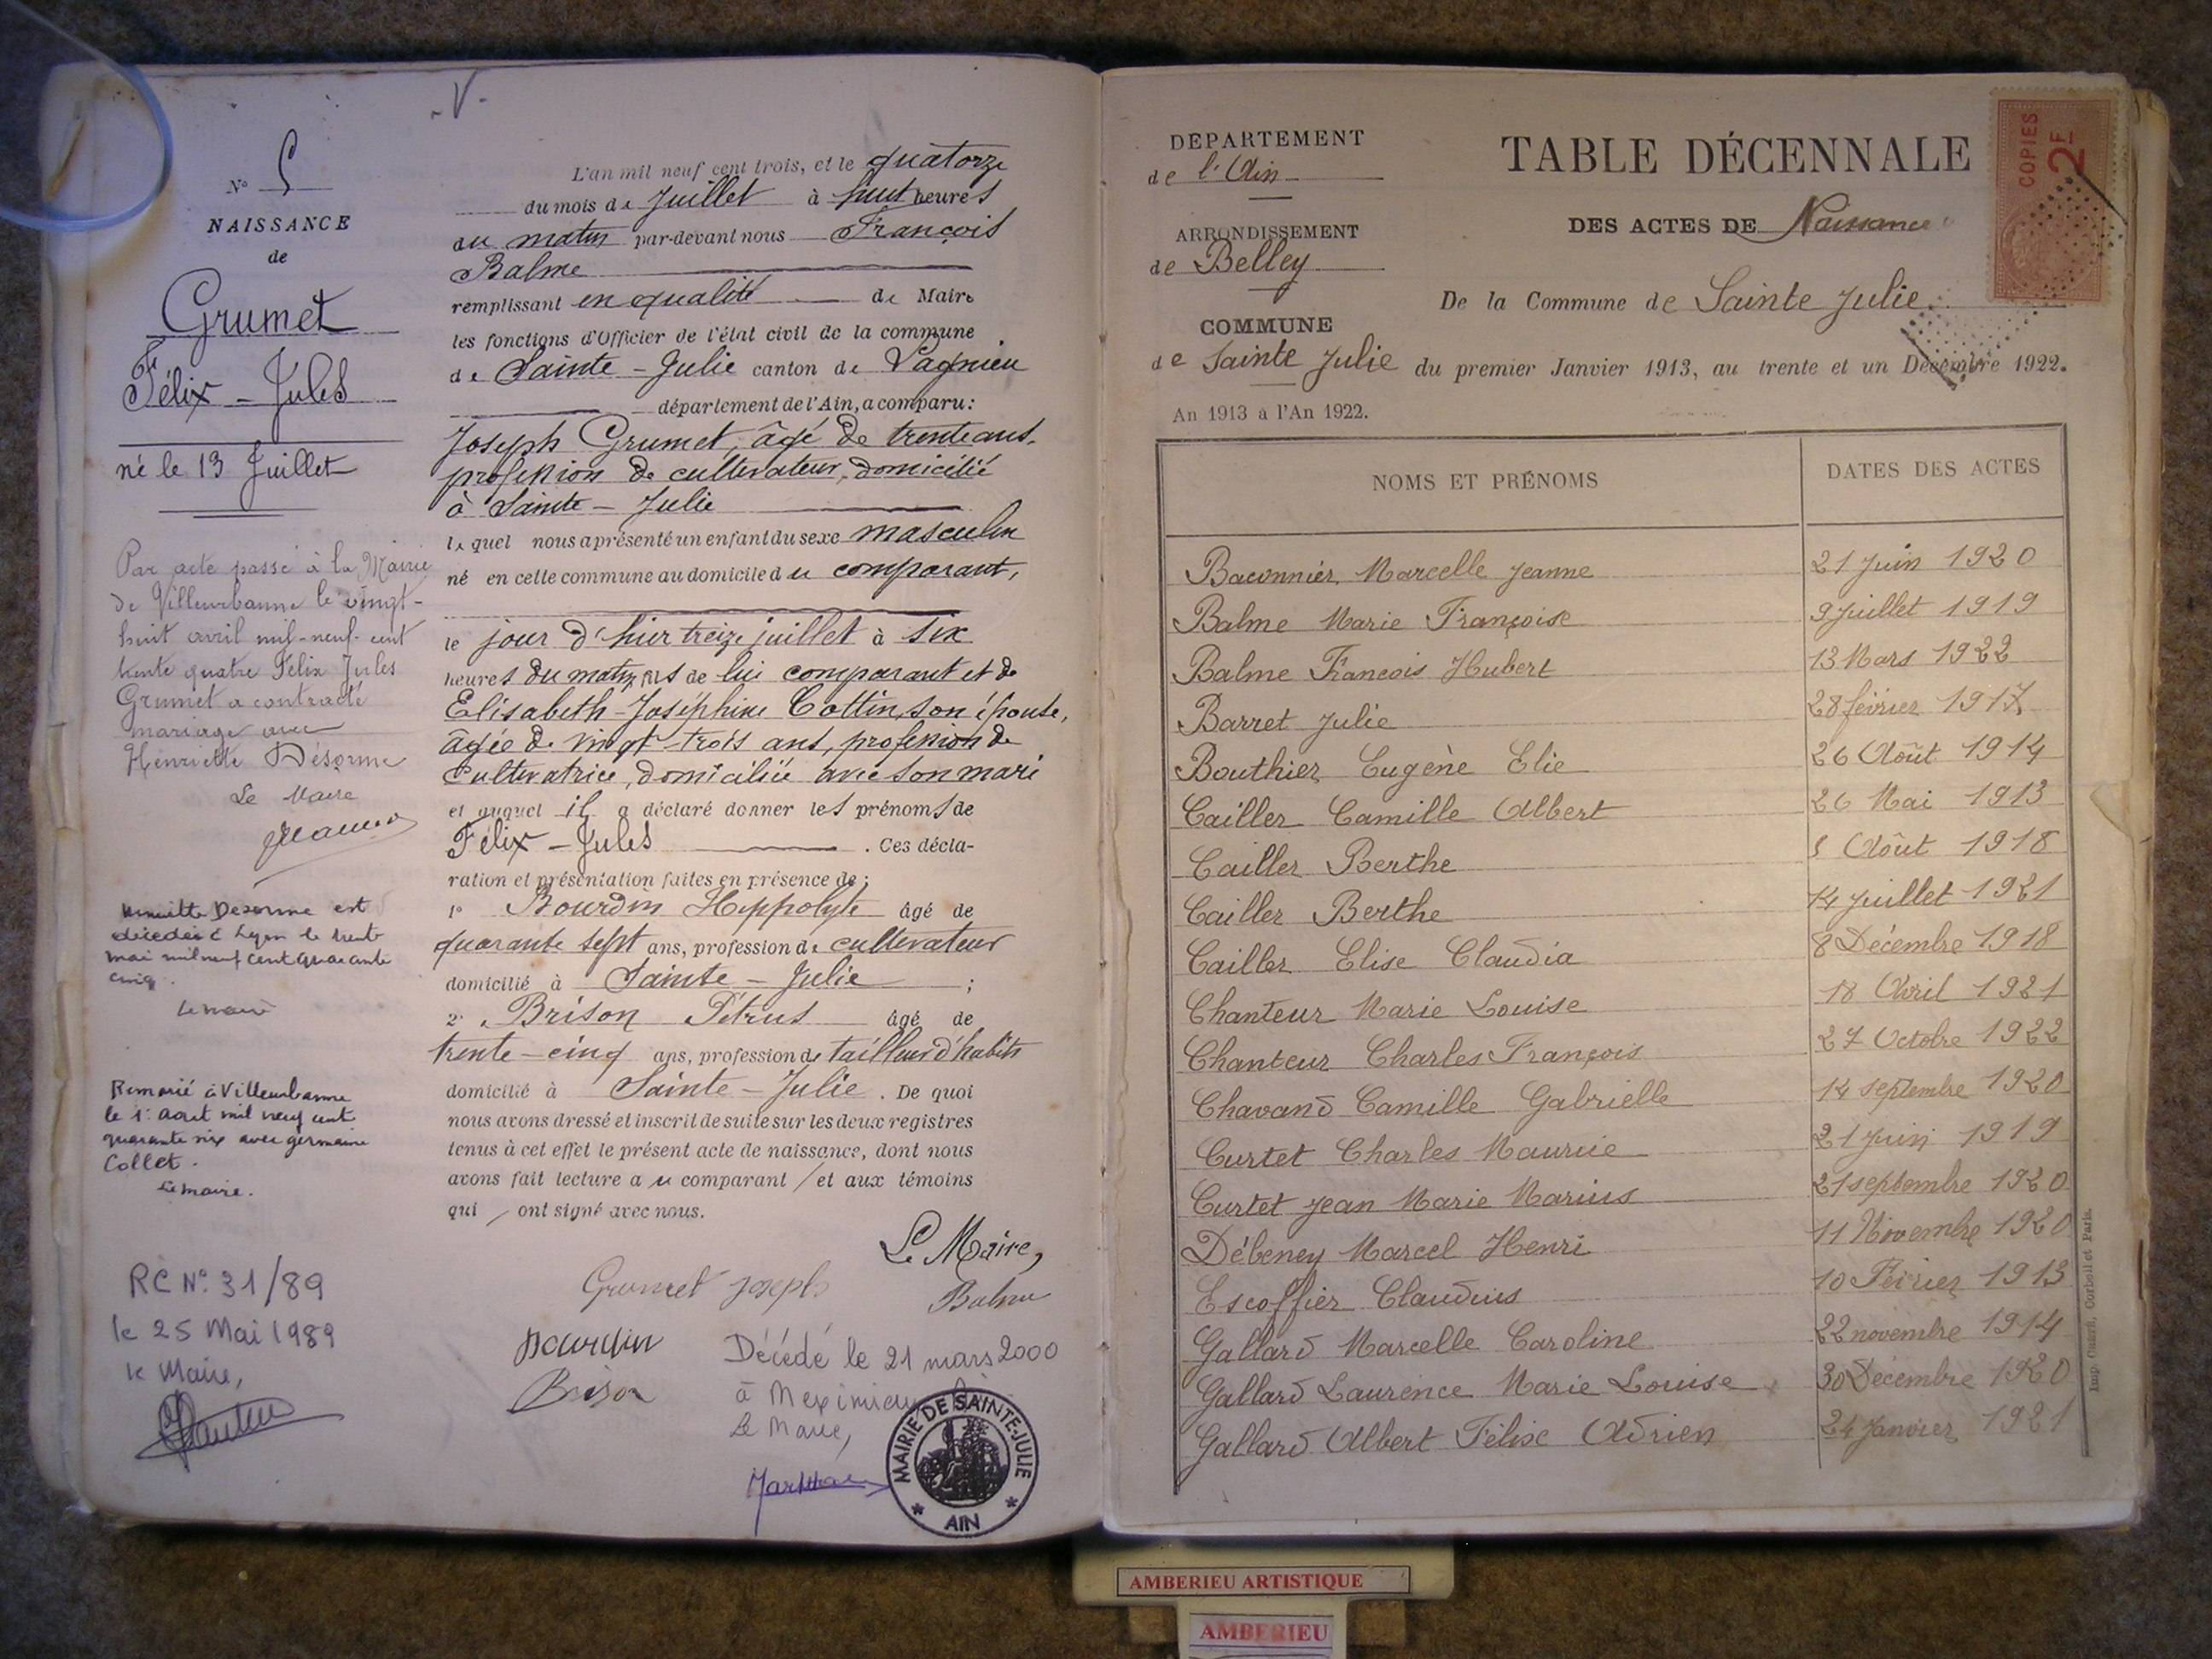 - V -
N° 5
NAISSANCE
de
Grumet
Félix - Jules
né le 13 Juillet
Par acte passé à la Mairie
de Villeurbanne le vingt-
huit avril mil-neuf-cent
trente quatre Félix Jules
Grumet a contracté
mariage avec
Henriette Désorme
Le Maire
Henriette Desorme est
décédée à Lyon le trente
mai mil neuf cent quarante
cinq.
Le maire
Remarié à Villeurbanne
le 1er aout mil neuf cent
quarante six avec germaine
Collet.
Le maire.
RC N° 31/89
le 25 Mai 1989
le Maire,
L'an mil neuf cent trois, et le quatorze
du mois de Juillet à huit heures
du matin par-devant nous François
Balme
remplissant en qualité de Maire
les fonctions d'Officier de l'état civil de la commune
de Sainte - Julie canton de Lagnieu
département de l'Ain, a comparu :
Joseph Grumet, âgé de trente ans,
profession de cultivateur, domicilié
à Sainte - Julie
lequel nous a présenté un enfant du sexe masculin
né en cette commune au domicile du comparant,
le jour d'hier treize juillet à six
heures du matin, fils de lui comparant et de
Elisabeth-Joséphine Cottin, son épouse,
âgée de vingt-trois ans, profession de
cultivatrice, domiciliée avec son mari
et auquel il a déclaré donner les prénoms de
Félix - Jules . Ces décla-
ration et présentation faites en présence de :
1° Bourdin Hippolyte âgé de
quarante sept ans, profession de cultivateur
domicilié à Sainte - Julie ;
2° Brison Pétrus âgé de
trente - cinq ans, profession de tailleur d'habits
domicilié à Sainte - Julie . De quoi
nous avons dressé et inscrit de suite sur les deux registres
tenus à cet effet le présent acte de naissance, dont nous
avons fait lecture au comparant / et aux témoins
qui / ont signé avec nous.
Le Maire,
Grumet Joseph
Balme
Bourdin
Brison
Décédé le 21 mars 2000
à Meximieux
Le Maire,
MAIRIE DE SAINTE-JULIE
* AIN *
DÉPARTEMENT
de l'Ain
ARRONDISSEMENT
de Belley
COMMUNE
de Sainte Julie
An 1913 à l'An 1922.
TABLE DÉCENNALE
DES ACTES DE Naissance
De la Commune de Sainte Julie
du premier Janvier 1913, au trente et un Décembre 1922.
COPIES
2F
NOMS ET PRÉNOMS DATES DES ACTES
Baconnier Marcelle Jeanne 21 Juin 1920
Balme Marie Françoise 9 Juillet 1919
Balme Francois Hubert 13 Mars 1922
Barret Julie 28 février 1917
Bouthier Eugène Elie 26 Août 1914
Cailler Camille Albert 26 Mai 1913
Cailler Berthe 5 Août 1918
Cailler Berthe 14 Juillet 1921
Cailler Elise Claudia 8 Décembre 1918
Chanteur Marie Louise 18 Avril 1921
Chanteur Charles François 27 Octobre 1922
Chavand Camille Gabrielle 14 septembre 1920
Curtet Charles Maurice 21 Juin 1919
Curtet Jean Marie Marius 21 septembre 1920
Débeney Marcel Henri 11 Novembre 1920
Escoffier Claudius 10 Février 1913
Gallard Marcelle Caroline 22 novembre 1914
Gallard Laurence Marie Louise 30 Décembre 1920
Gallard Albert Félix Adrien 24 Janvier 1921
AMBERIEU ARTISTIQUE
AMBERIEU